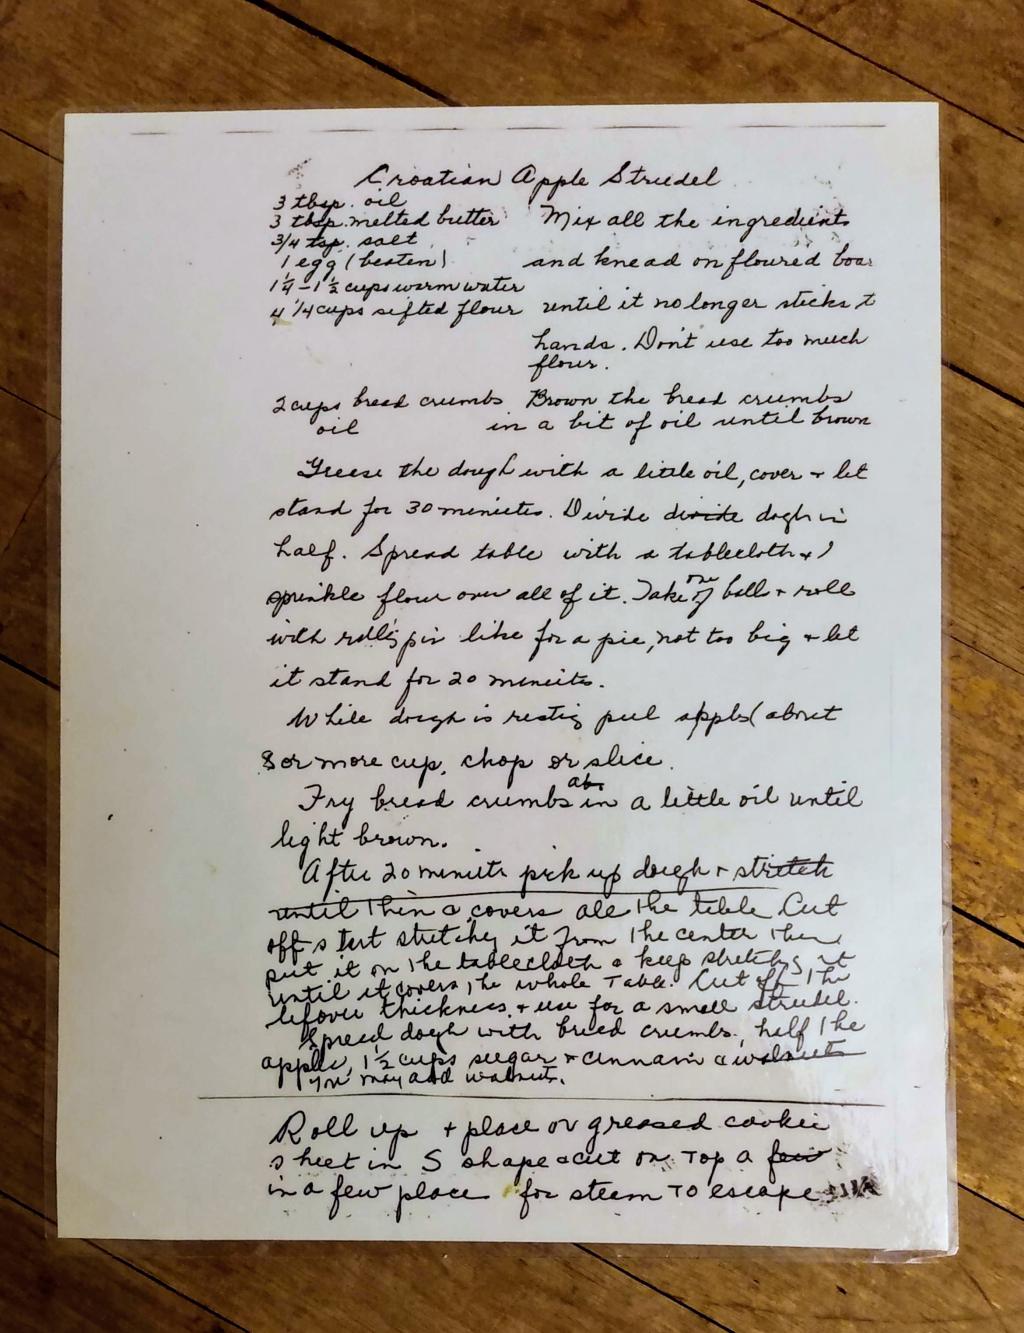 Croatian Apple Strudel
3 tbsp. oil
3 tbsp. melted butter Mix all the ingredients
3/4 tsp. salt
1 egg (beaten) and knead on floured boar
1 1/4 - 1 1/2 cups warm water
4 1/4 cups sifted flour until it no longer sticks t
hands. Don't use too much
flour.
2 cups bread crumbs Brown the bread crumbs
oil in a bit of oil until brown
Grease the dough with a little oil, cover + let
stand for 30 minutes. Divide divide dogh in
half. Spread table with a tablecloth +
sprinkle flour over all of it. Take one of ball + roll
with rollig pin like for a pie, not too big + let
it stand for 20 minutes.
While dough is restig peel apples (about
8 or more cup, chop or slice.
Fry bread crumbs in a little oil until
light brown.
After 20 minute pick up dough + stretch
until thin & covers all the table Cut
off stretchg it from the center then
put it on the tablecloth & keep stretchg it
until it covers the whole Table. Cut off the
leftover thickness + use for a small strudel.
Spread dogh with bread crumbs, half the
apple, 1 1/2 cups sugar + & walnuts
you may add walnuts.
Roll up + place on greased cookie
sheet in S shape & cut on Top a few
in a few place for steam To escape